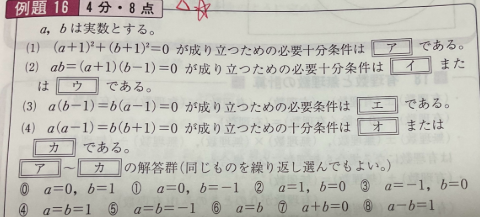 例題 16 4分・8点
a, bは実数とする。
(1) (a+1)²+(b+1)²=0 が成り立つための必要十分条件は ア である。
(2) ab=(a+1)(b-1)=0 が成り立つための必要十分条件は イ また
は ウ である。
(3) a(b-1)=b(a-1)=0 が成り立つための必要条件は エ である。
(4) a(a-1)=b(b+1)=0 が成り立つための十分条件は オ または
カ である。
ア ～ カ の解答群(同じものを繰り返し選んでもよい。)
⓪ a=0, b=1 ① a=0, b=-1 ② a=1, b=0 ③ a=-1, b=0
④ a=b=1 ⑤ a=b=-1 ⑥ a=b ⑦ a+b=0 ⑧ a-b=1